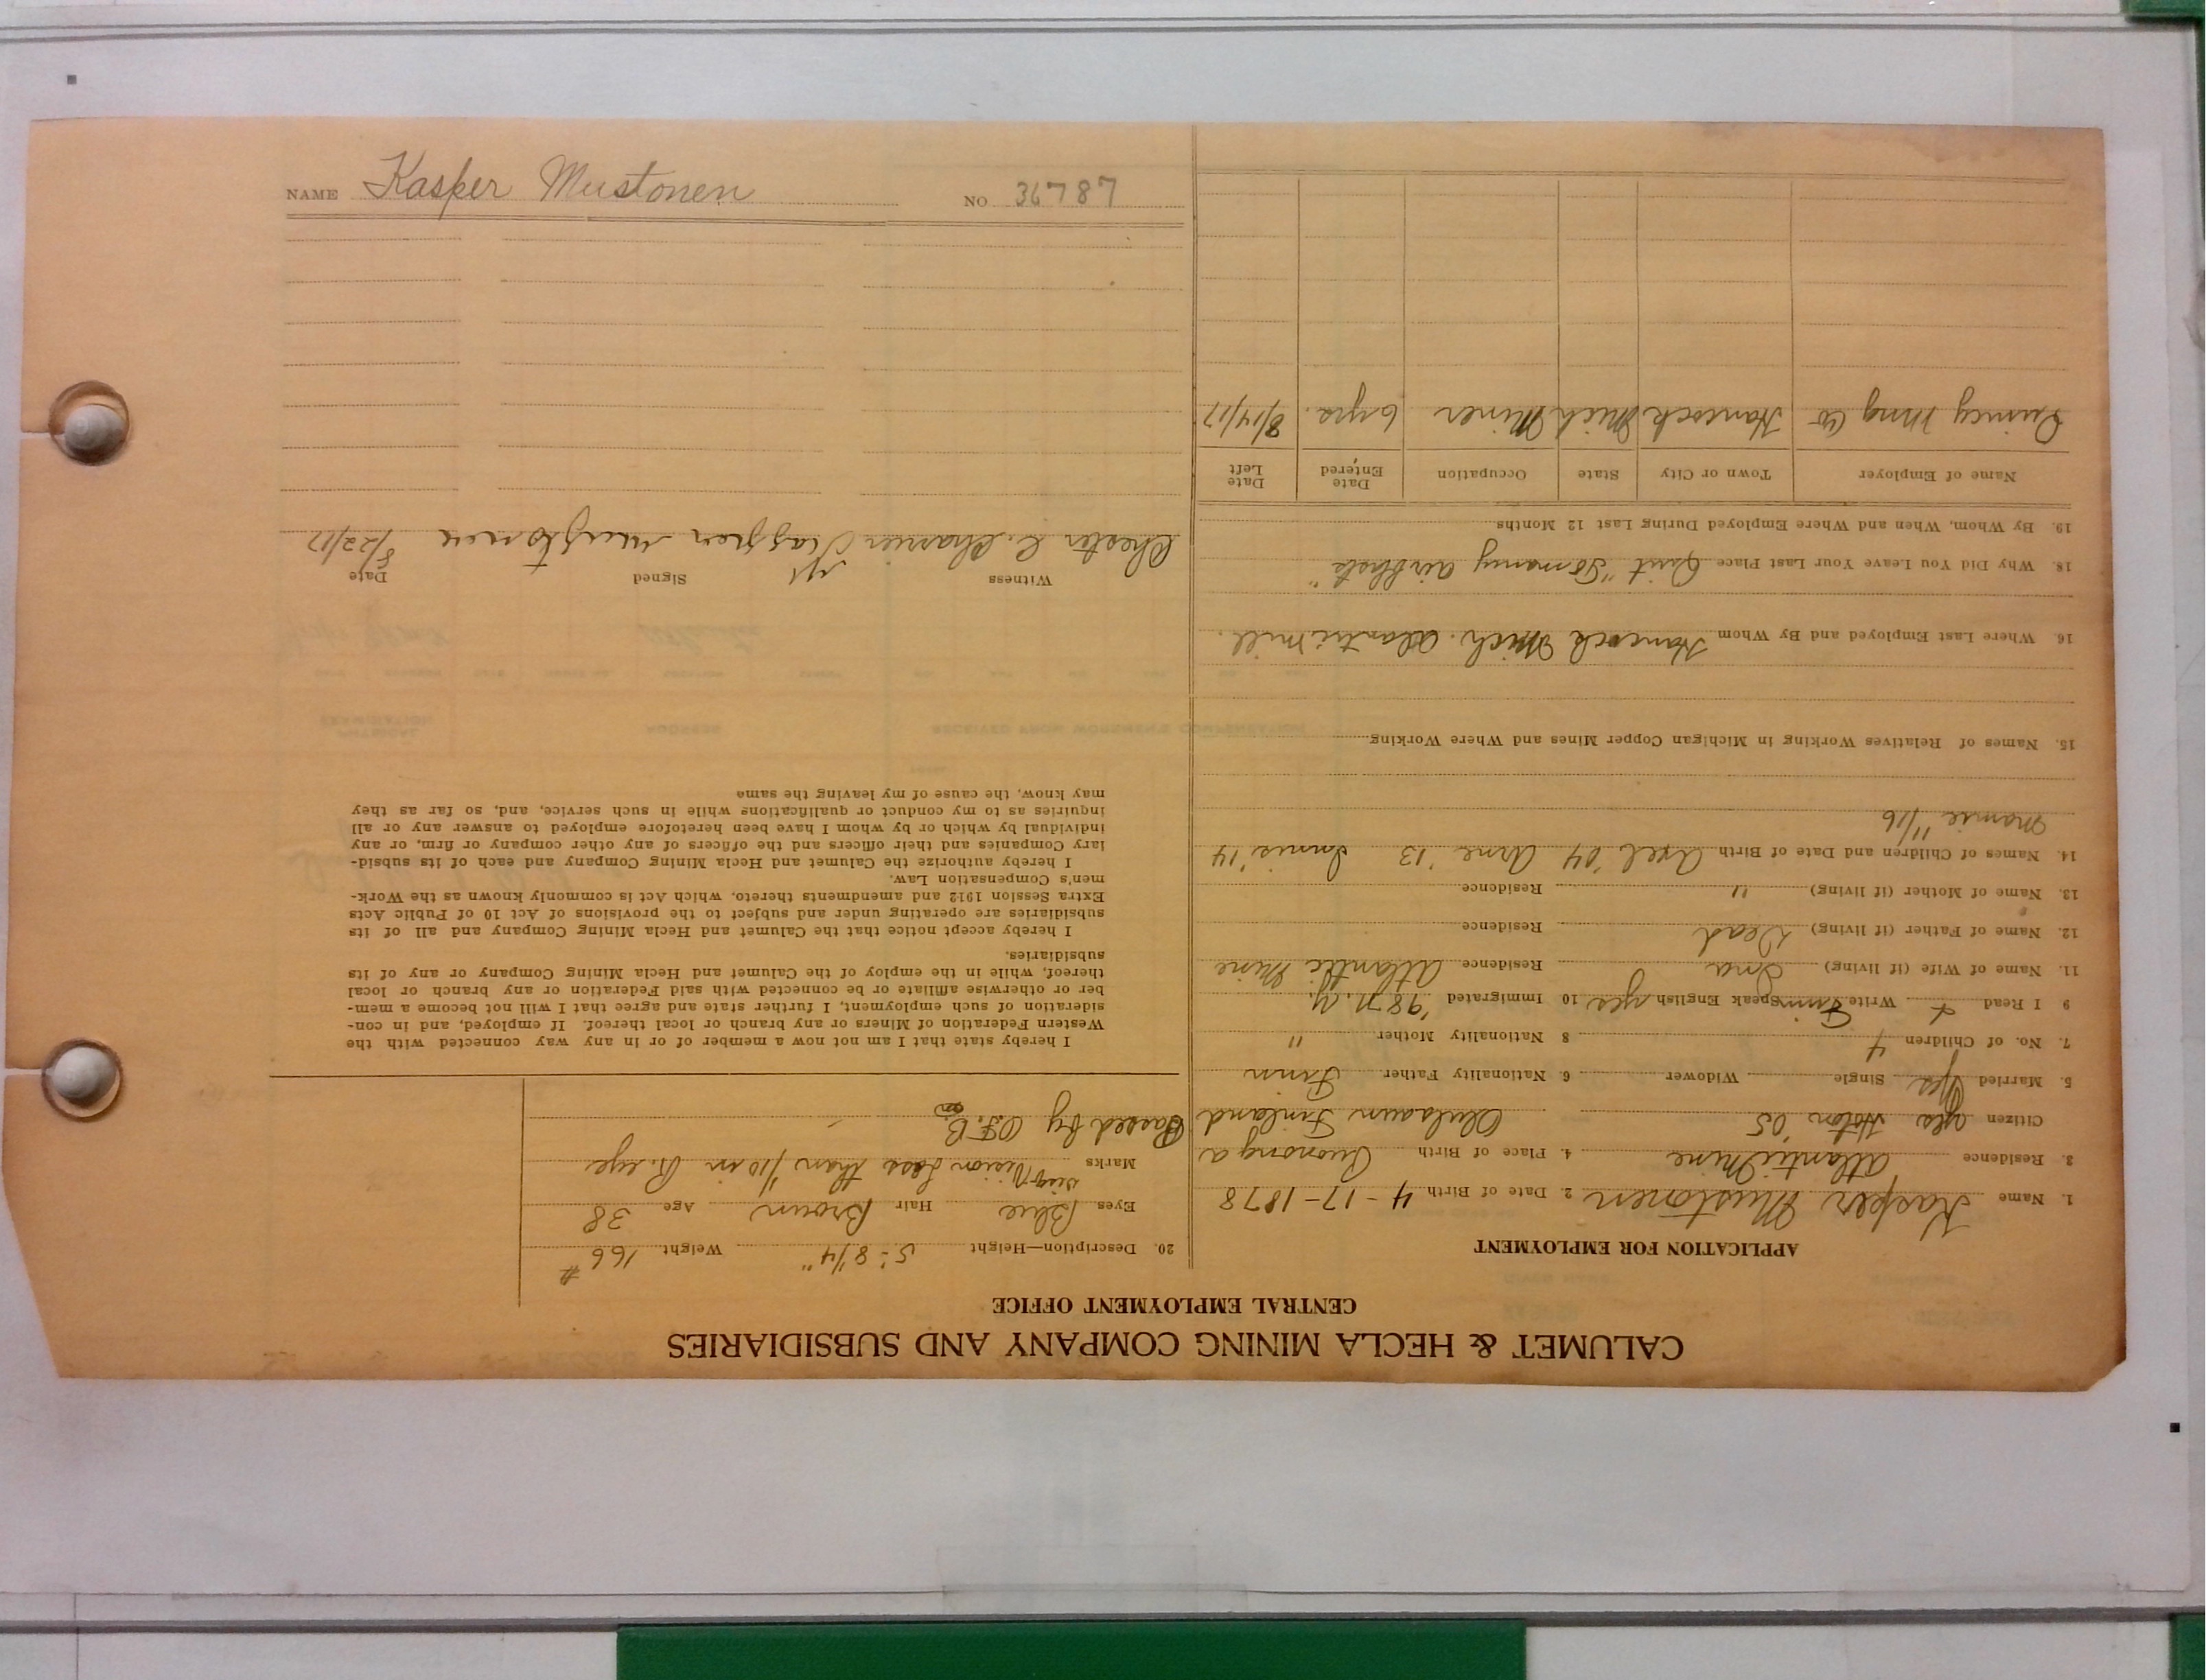 CALUMET & HECLA MINING COMPANY AND SUBSIDIARIES
CENTRAL EMPLOYMENT OFFICE
APPLICATION FOR EMPLOYMENT
1. Name Kasper Mustonen 2. Date of Birth 4-17-1878
3. Residence Atlantic Mine 4. Place of Birth
Citizen yes Hoton '05 Finland
5. Married Yes Single Widower 6. Nationality Father Finn
7. No. of Children 4 8 Nationality Mother "
9 I Read & Write Finn Speak English yes 10 Immigrated '98 N.Y.
11. Name of Wife (if living) Ina Residence Atlantic Mine
12. Name of Father (if living) Dead Residence
13. Name of Mother (if living) " Residence
14. Names of Children and Date of Birth Axel '04 Arne '13 '14
Mamie 11/16
15. Names of Relatives Working in Michigan Copper Mines and Where Working
16. Where Last Employed and By Whom Hancock Mich. Mill.
18. Why Did You Leave Your Last Place Quit "So many airblasts"
19. By Whom, When and Where Employed During Last 12 Months
Name of Employer Town or City State Occupation Date Entered Date Left
Quincy Mng Co Hancock Mich Miner 6 yrs. 8/14/17
20. Description—Height 5'-8 1/4" Weight 166 #
Eyes Blue Hair Brown Age 38
Marks Vision Less than 1/10 in R. eye
Passed by
I hereby state that I am not now a member of or in any way connected with the
Western Federation of Miners or any branch or local thereof. If employed, and in con-
sideration of such employment, I further state and agree that I will not become a mem-
ber or otherwise affiliate or be connected with said Federation or any branch or local
thereof, while in the employ of the Calumet and Hecla Mining Company or any of its
subsidiaries.
I hereby accept notice that the Calumet and Hecla Mining Company and all of its
subsidiaries are operating under and subject to the provisions of Act 10 of Public Acts
Extra Session 1912 and amendments thereto, which Act is commonly known as the Work-
men's Compensation Law.
I hereby authorize the Calumet and Hecla Mining Company and each of its subsid-
iary Companies and their officers and the officers of any other company or firm, or any
individual by which or by whom I have been heretofore employed to answer any or all
inquiries as to my conduct or qualifications while in such service, and, so far as they
may know, the cause of my leaving the same
Witness Signed Date
Chester C. 8/22/17
NAME Kasper Mustonen NO 36787